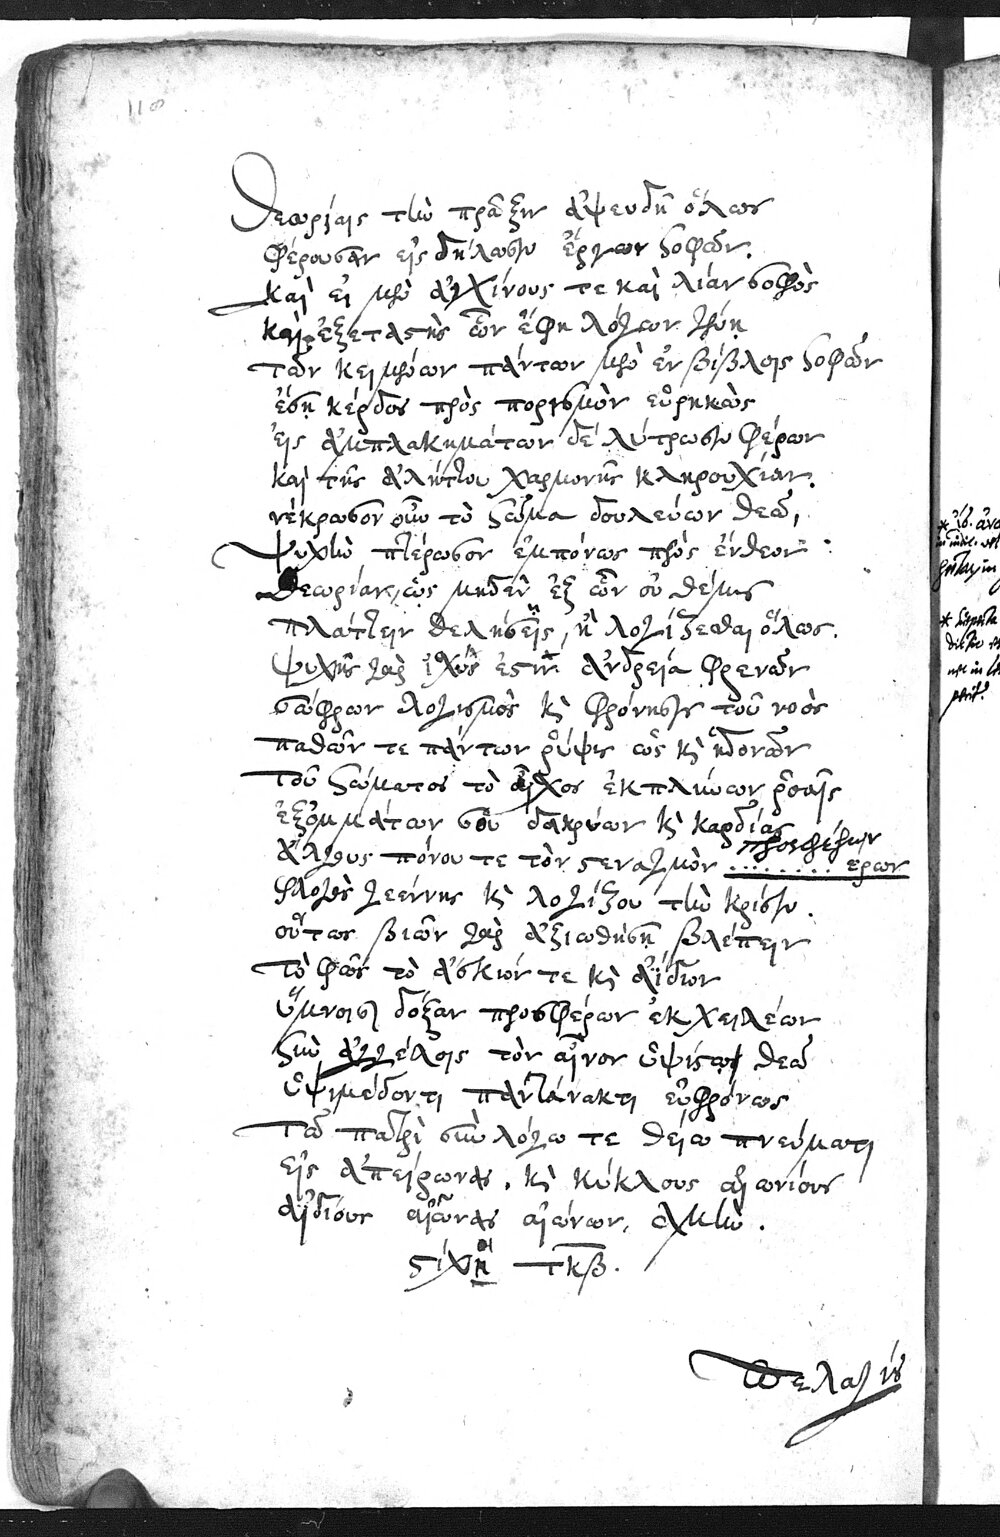 118
θεωρίαις τὴν πρᾶξιν ἀψευδῆ ὅλως
φέρουσαν εἰς δήλωσιν ἔργων σοφῶν.
καὶ εἰ μὲν ἀγχίνους τε καὶ λίαν σοφὸς
καὶ ἐξεταστὴς ὧν ἔφην λόγων
τῶν κειμένων πάντων μὲν ἐν βίβλοις σοφῶν
ἔσῃ κέρδος πρὸς πορισμὸν εὑρηκὼς
εἰς ἀμπλακημάτων δὲ λύτρωσιν φέρων
καὶ τῆς ἀλήκτου χαρμονῆς κληρουχίαν.
νέκρωσον οὖν τὸ σῶμα δουλεύων θεῷ,
ψυχὴν πτέρωσον ἐμπόνως πρὸς ἔνθεον
θεωρίαν, ὡς μηδὲν ἐξ ὧν οὐ θέμις
πλάττειν θελήσεις, ἢ λογίζεσθαι ὅλως.
ψυχῆς γὰρ ἰσχύς ἐστιν ἀνδρεία φρενῶν
σώφρων λογισμὸς κὶ φρόνησις τοῦ νοὸς
παθῶν τε πάντων ῥύψις ὡς κὶ ἡδονῶν
τοῦ σώματος τὸ αἶσχος ἐκπλύνων ῥοαῖς
ἐξ ὀμμάτων σοῦ δακρύων κὶ καρδίας
προσφέρων
ἄλγους πόνου τε τὸν στεναγμὸν ........ έρων
φλογὸς γεέννης κὶ λογίζου τὴν κρίσιν.
οὕτως βιῶν γὰρ ἀξιωθήσῃ βλέπειν
τὸ φῶς τὸ ἄσκιόν τε κὶ ἀΐδιον
ὕμνοισι δόξαν προσφέρων ἐκ χειλέων
σὺν ἀγγέλοις τὸν αἶνον ὑψίστῳ θεῷ
ὑψιμέδοντι παντάνακτι εὐφρόνως
τῷ πατρὶ σὺν λόγῳ τε θείῳ πνεύματι
εἰς ἀπείρωνας, κὶ κύκλους αἰωνίους
αἰδίους αἰῶνας αἰώνων, ἀμήν.
στίχοι τκβ.
πελαγίου